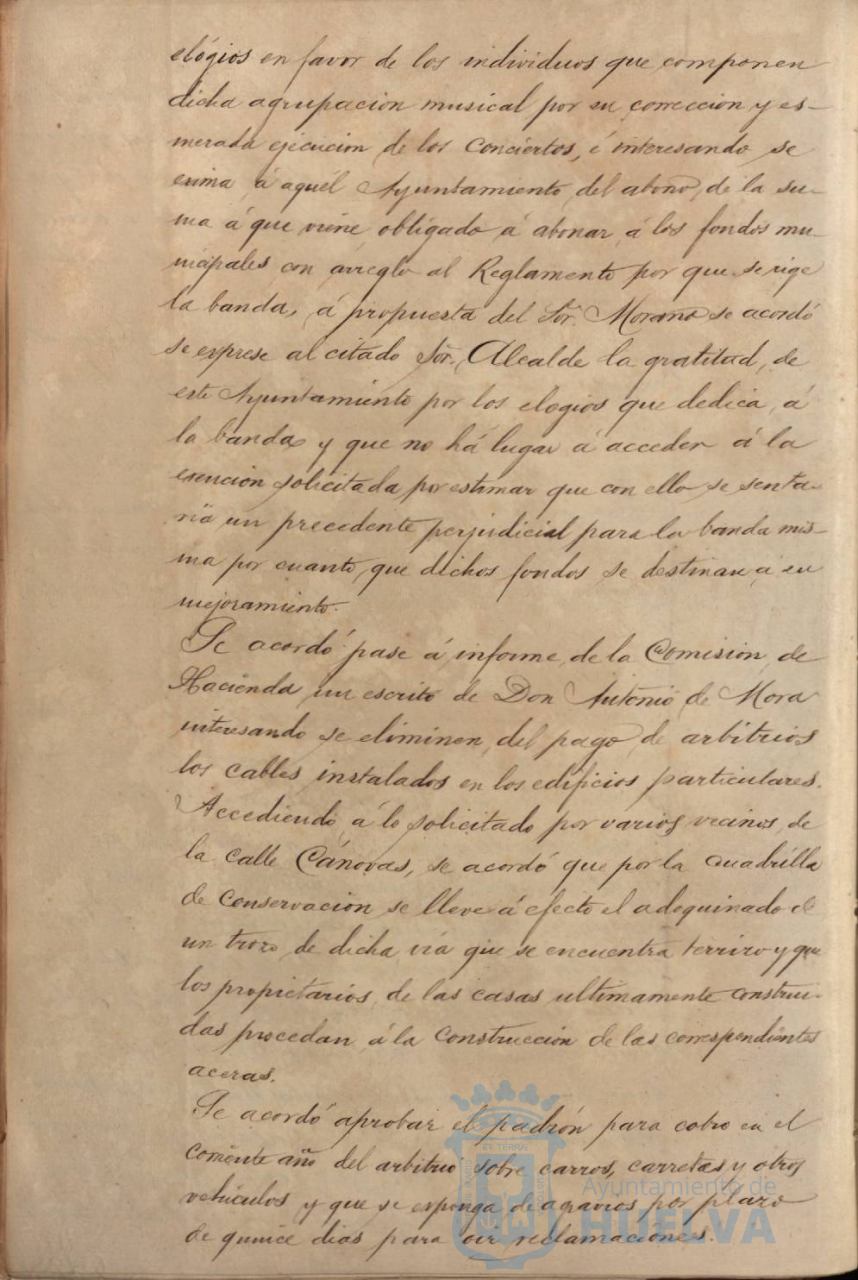 elógios en favor de los individuos que componen
dicha agrupacion musical por su correccion y es-
merada ejecucion de los conciertos, é interesando se
exima á aquél Ayuntamiento del abono de la su-
ma á que viene obligado á abonar á los fondos mu-
nicipales con arreglo al Reglamento por que se rige
la banda, á propuesta del Sor. Morano se acordó
se exprese al citado Sor. Alcalde la gratitud de
este Ayuntamiento por los elogios que dedica á
la banda y que no há lugar á acceder á la
exención solicitada por estimar que con ello se senta-
ria un precedente perjudicial para la banda mis-
ma por cuanto que dichos fondos se destinan á su
mejoramiento.
Se acordó pase á informe de la Comision de
Hacienda un escrito de Don Antonio de Mora
interesando se eliminen del pago de arbitrios
los cables instalados en los edificios particulares.
Accediendo á lo solicitado por varios vecinos de
la calle Cánovas, se acordó que por la cuadrilla
de conservacion se lleve á efecto el adoquinado de
un trozo de dicha via que se encuentra terrizo y que
los propietarios de las casas ultimamente construi-
das procedan á la construcción de las correspondientes
aceras.
Se acordó aprobar el padrón para cobro en el
corriente año del arbitrio sobre carros, carretas y otros
vehiculos y que se exponga de agravios por plazo
de quince dias para oir reclamaciones.
Ayuntamiento de
HUELVA